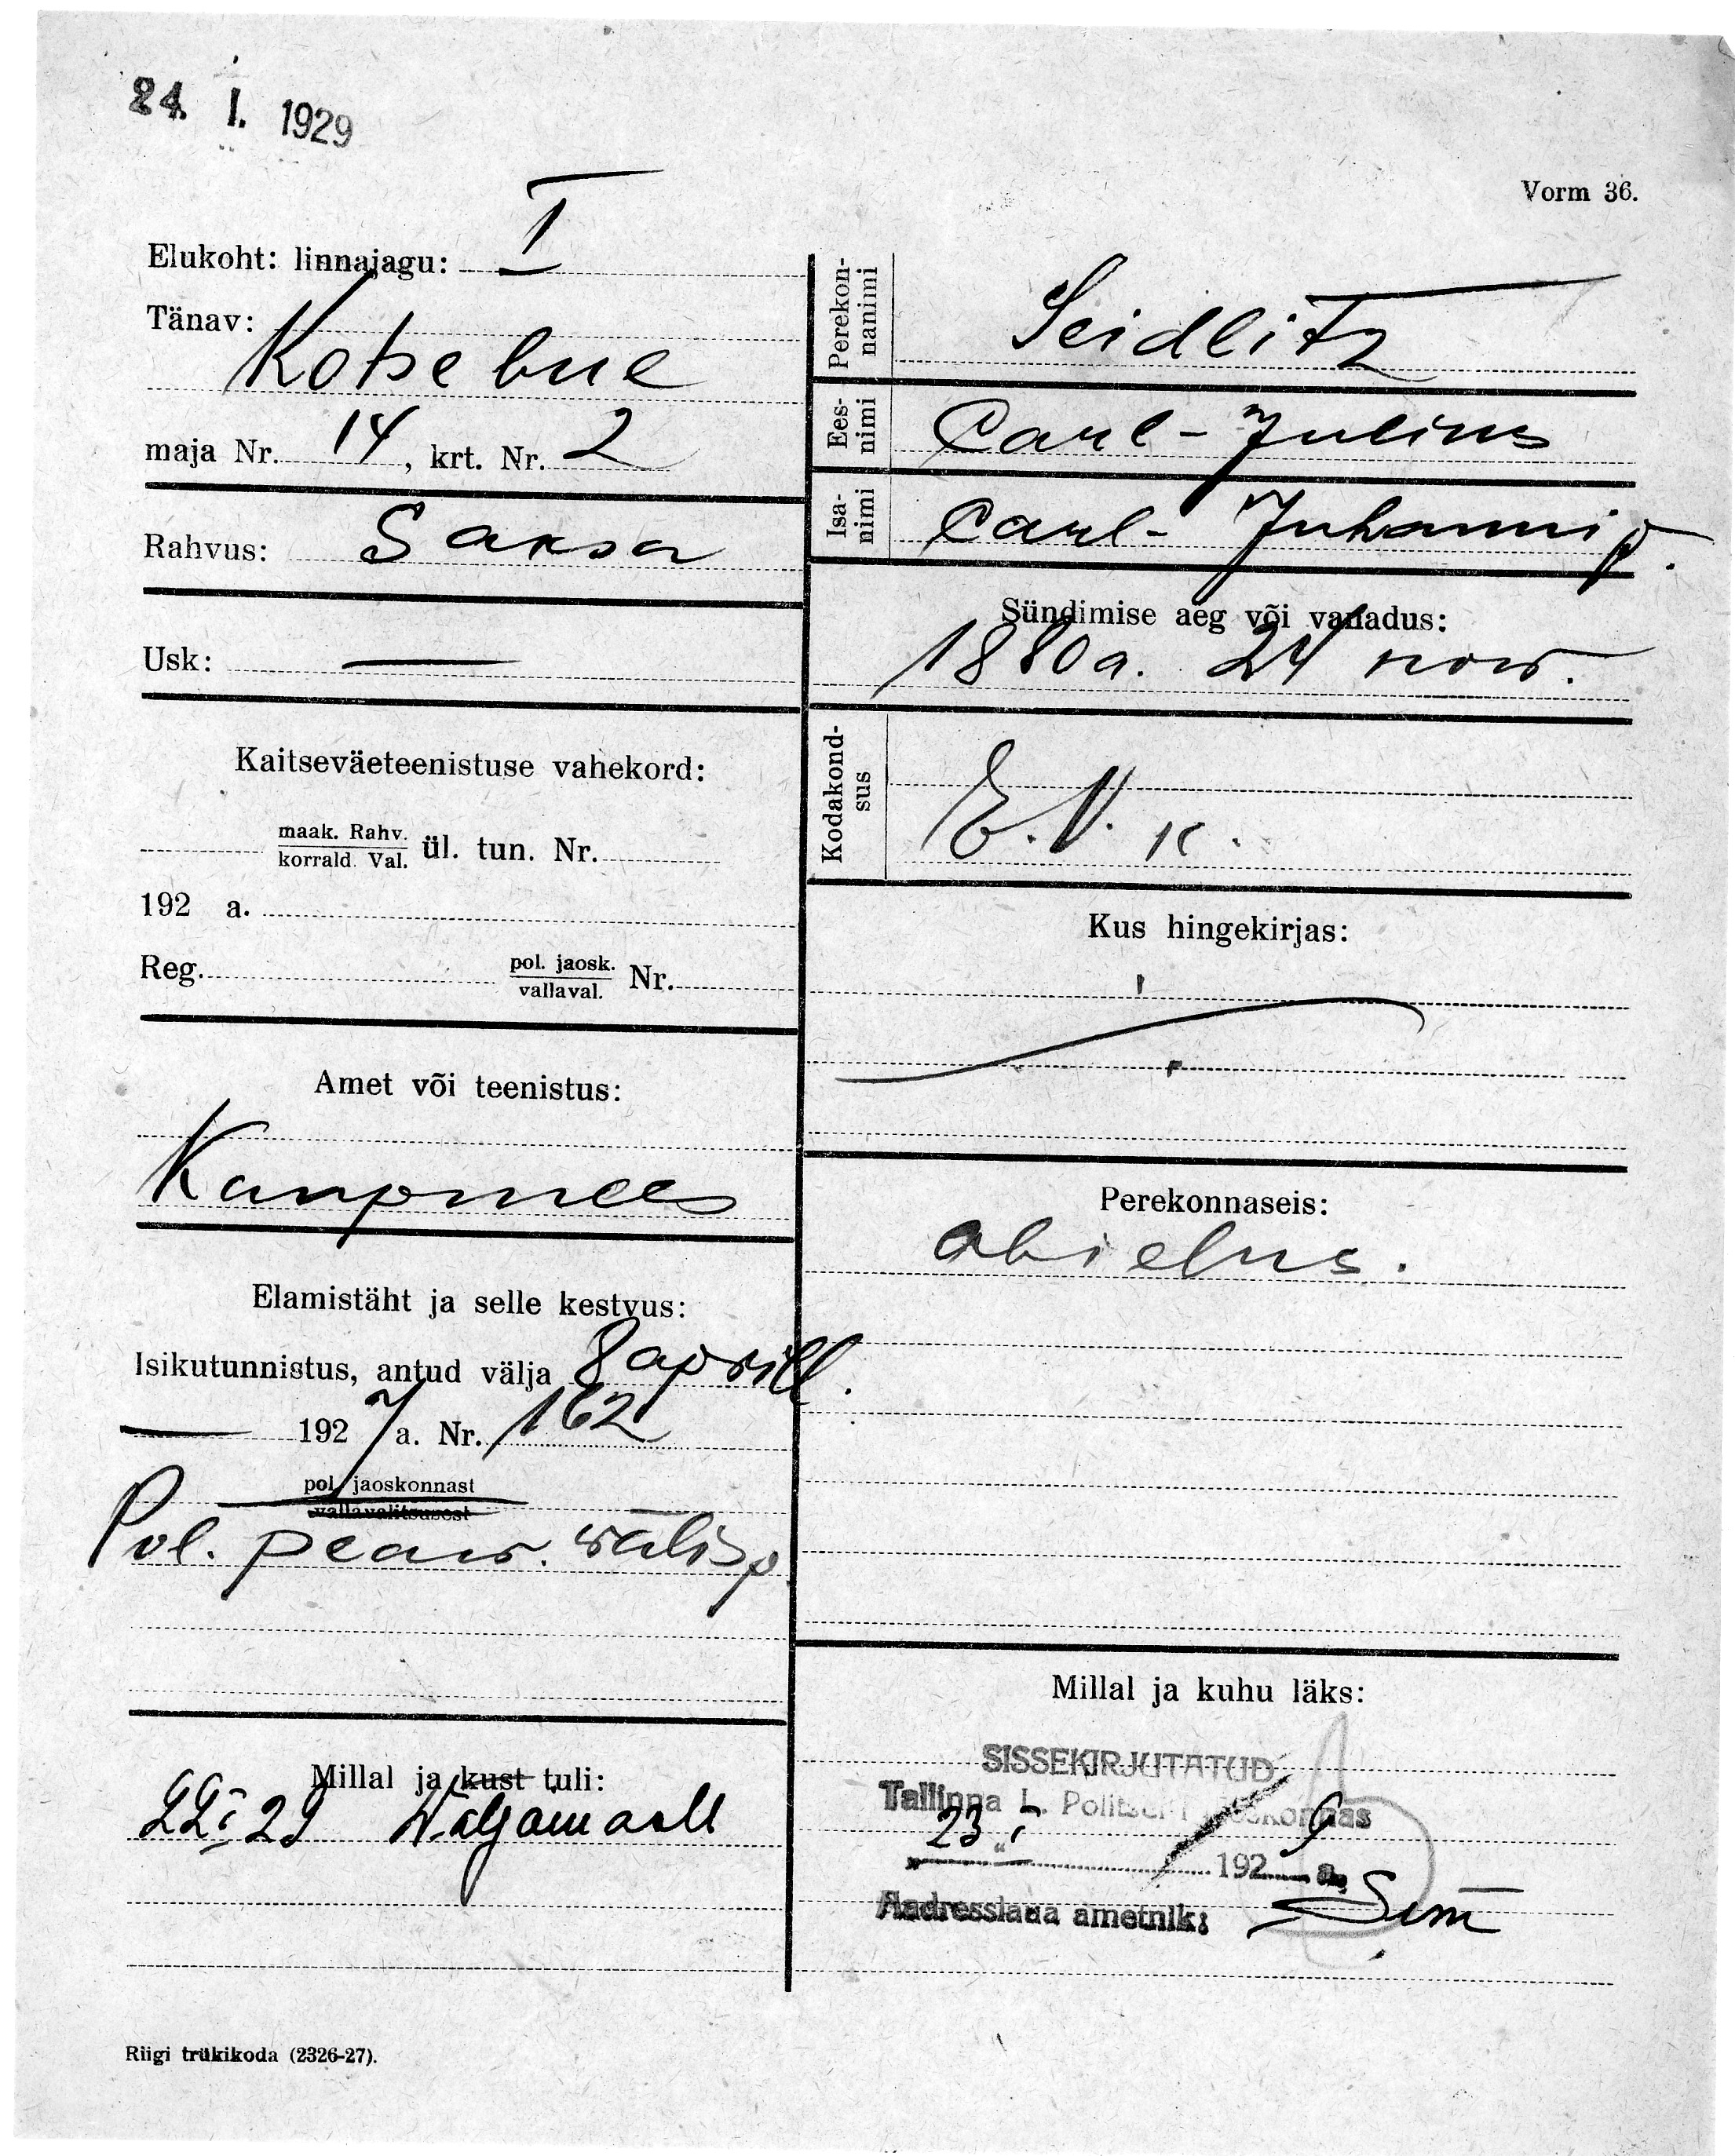 24. I. 1929
Vorm 36.
Elukoht: linnajagu: I
Tänav:
Kotsebue
maja Nr. 14, krt. Nr. 2
Rahvus: Saksa
Usk: —
Kaitseväeteenistuse vahekord:
maak. Rahv.
korrald. Val. ül. tun. Nr.
192 a.
Reg. pol. jaosk. Nr.
vallaval.
Amet või teenistus:
Kaupmees
Elamistäht ja selle kestvus:
Isikutunnistus, antud välja 8 aprill.
— 1927 a. Nr. 162
pol. jaoskonnast
vallavalitsusest
Pol. peaw. välisp.
Millal ja kust tuli:
22 I 29 Wäljamaalt
Perekon-
nanimi
Seidlitz
Ees-
nimi
Carl-Julius
Isa-
nimi
Carl-Juhanni p.
Sündimise aeg või vanadus:
1880 a. 24 now.
Kodakond-
sus
E.V. k.
Kus hingekirjas:
Perekonnaseis:
abielus.
Millal ja kuhu läks:
SISSEKIRJUTATUD
Tallinna L. Politsei I jaoskonnas
23 I 1929 a.
Aadresslaua ametnik:
Riigi trükikoda (2326-27).